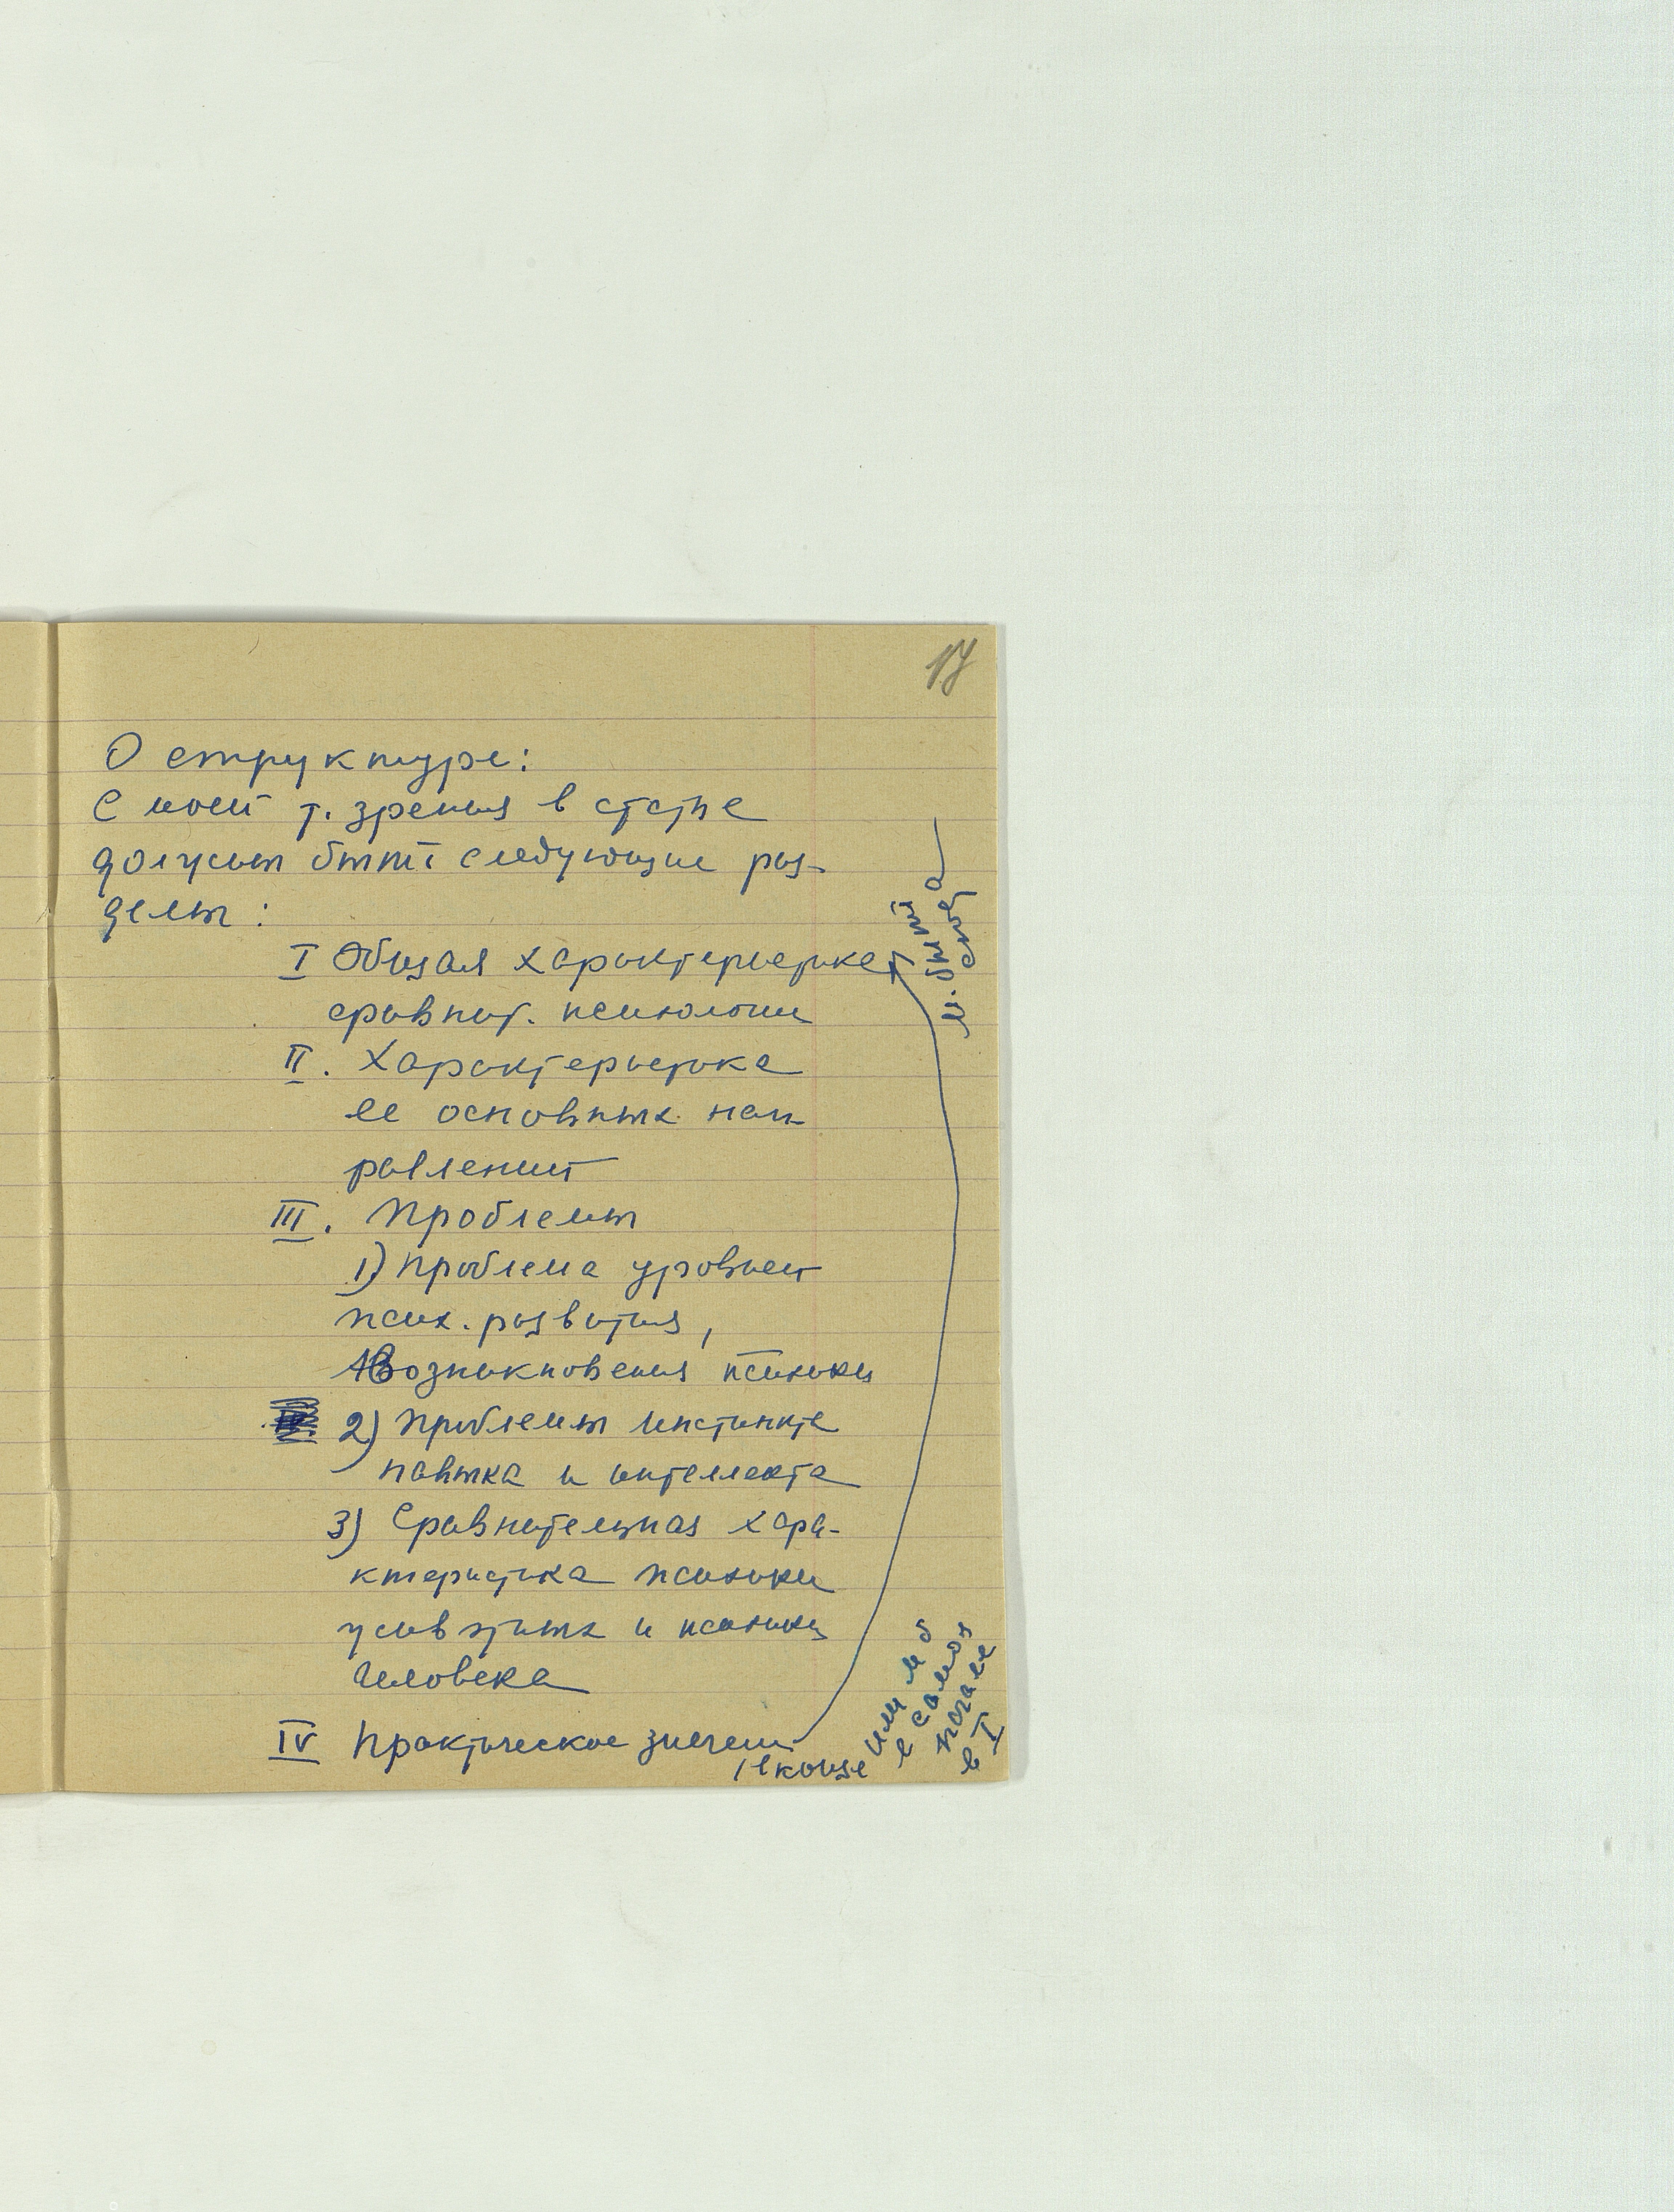 17
О структуре:
С моей т. зрения в статье
должны быть следующие раз-
делы:
I Общая характеристика
сравнит. психологии
II. Характеристика
ее основных нап-
равлений
III. Проблемы
1) Проблема уровней
псих. развития,
Возникновения психики
2) Проблемы инстинкта
навыка и интеллекта
3) Сравнительная хара-
ктеристика психики
животных и психики
человека
IV Практическое значени
в конце
или м б
в самом
начале
в I
м. быть
сюда